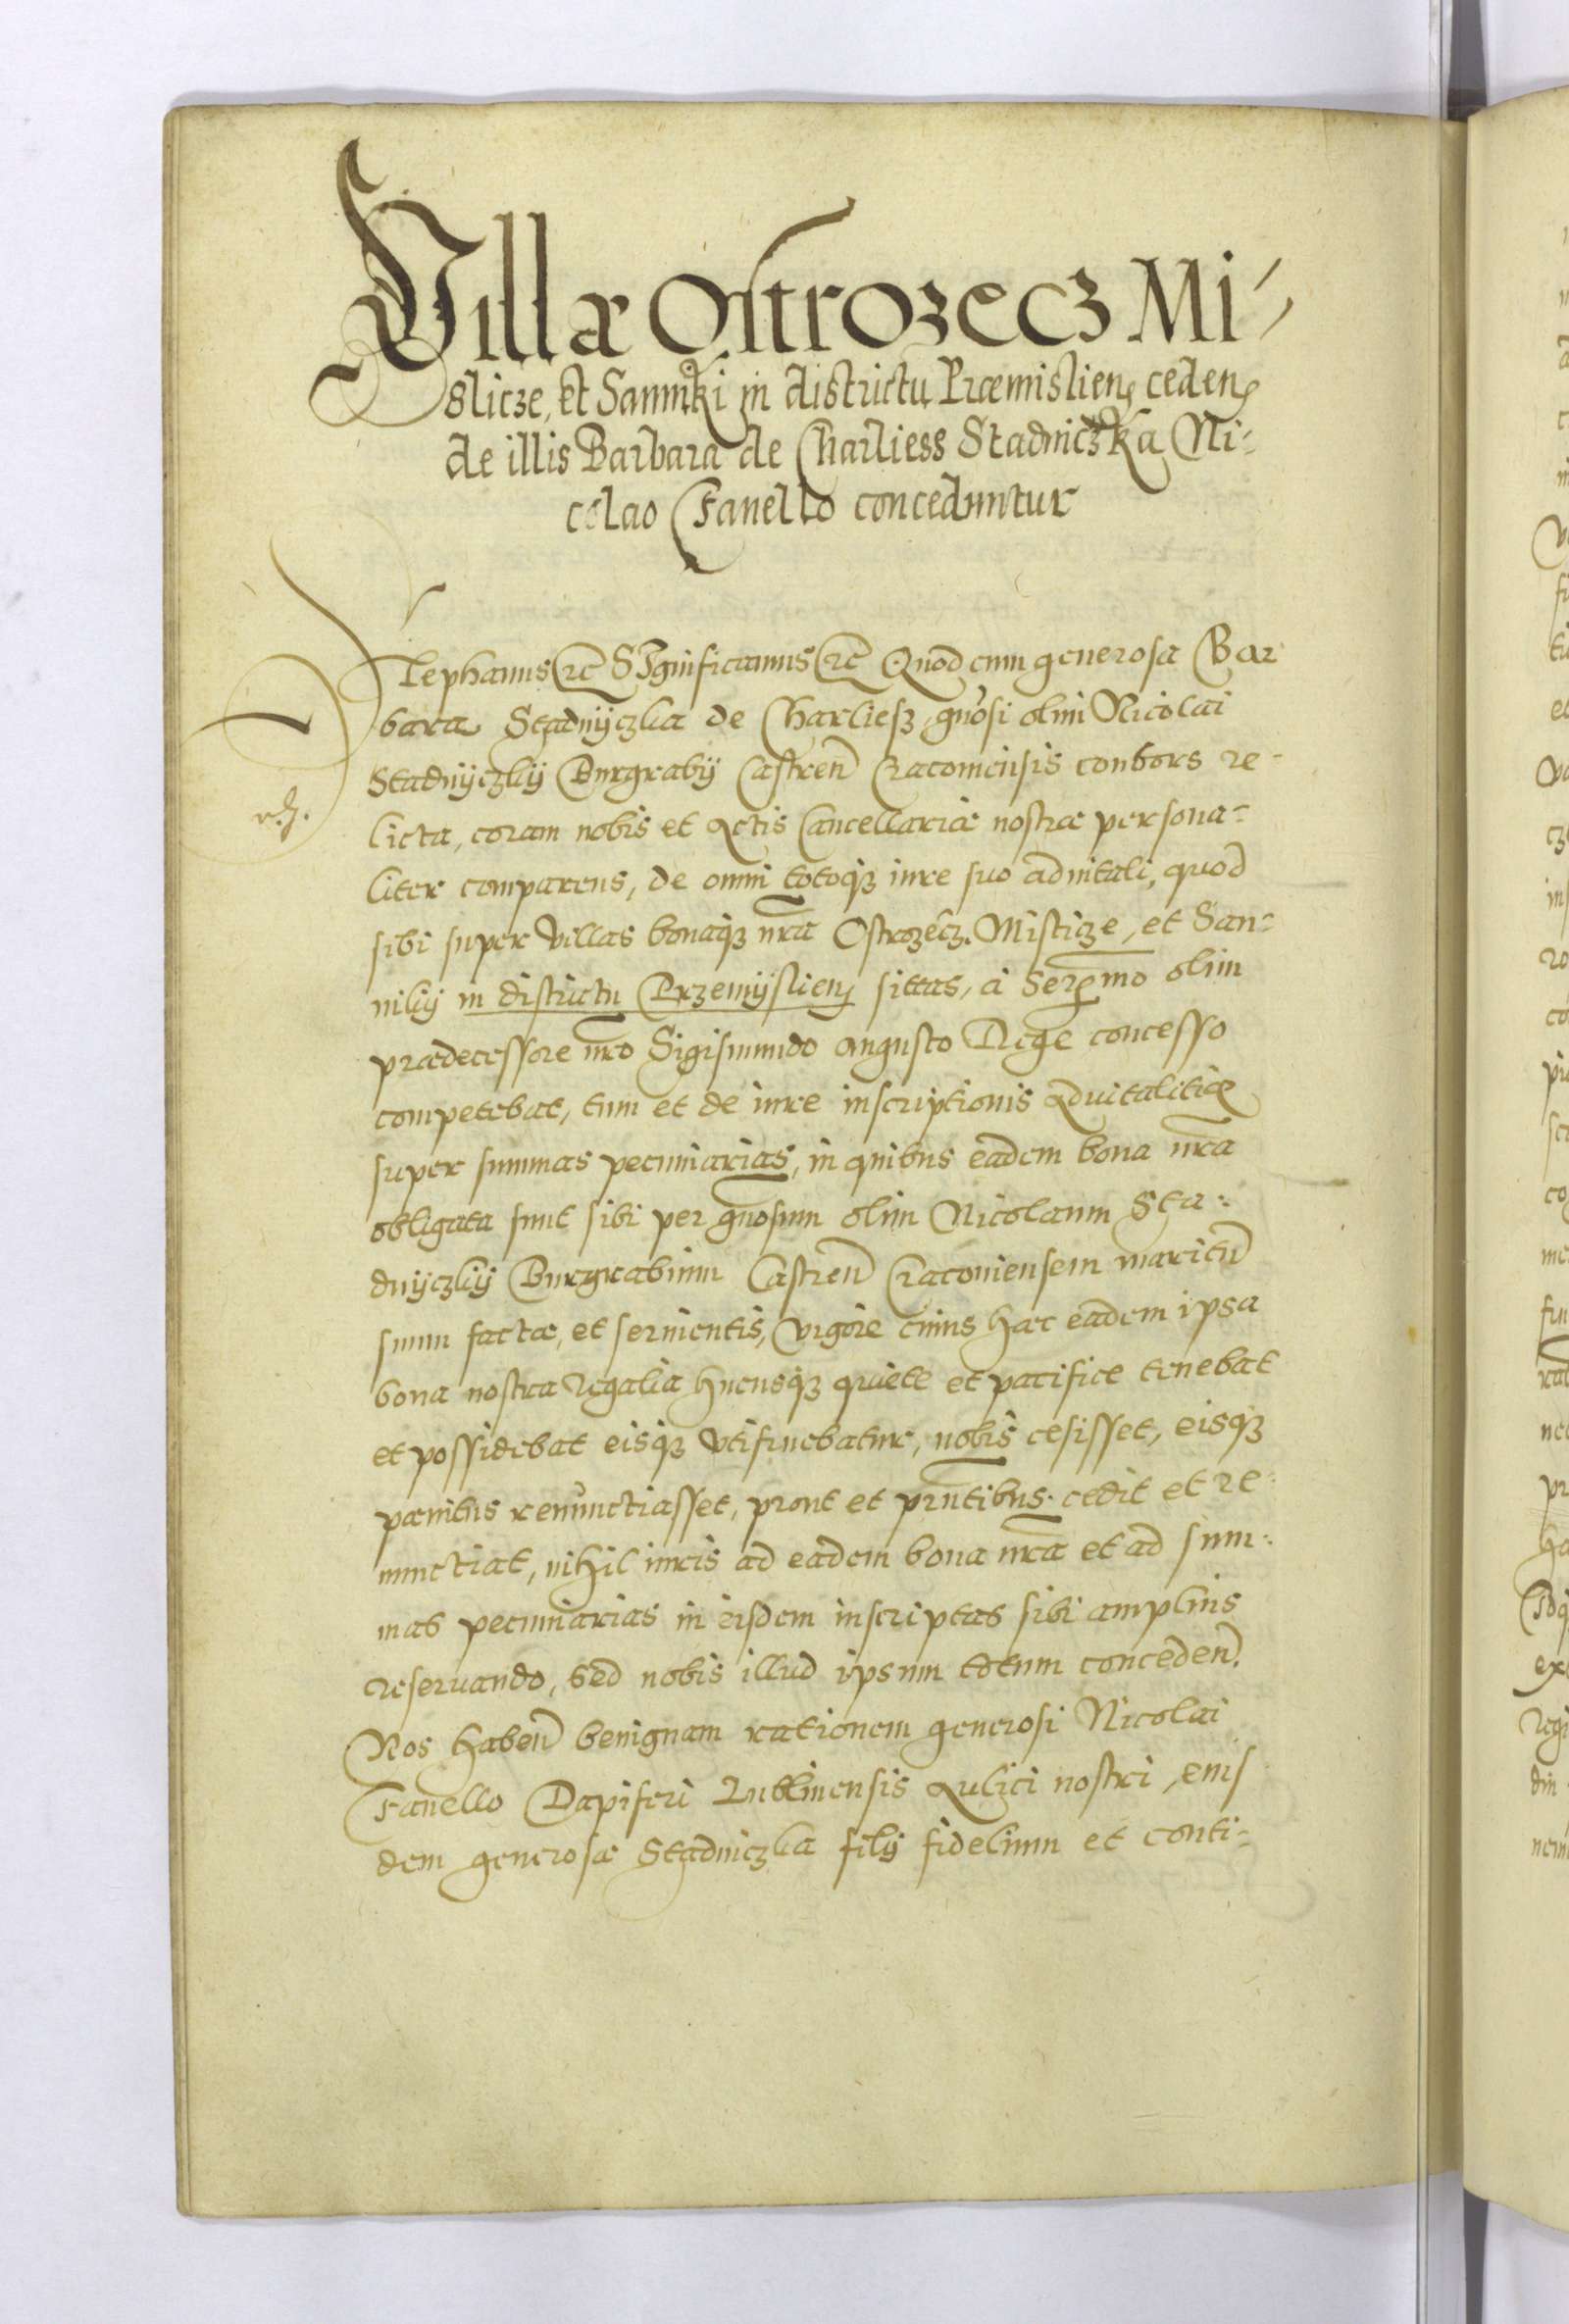 Villæ Ostrozecz Mi-
slicze, et Sanniki in districtu Præmislien ceden
de illis Barbara de Charliess Stadniczka Ni-
colao Fanello conceduntur
Stephanus etc̄ SIgnificamus etc̄ Quod cum generosa Bar
bara Stadnÿczka de Charliesz, gnosi olim Nicolai
Stadnÿczkÿ Burgrabÿ Castren̄ Cracoviensis consors re-
licta, coram nobis et Actis Cancellariæ nostræ persona-
rđ.
liter comparens, de omni totoqz iure suo advitali, quod
sibi super villas bonaqz nr̄a Ostrozecz, Misticze, et San-
nikÿ in districtu Przemÿslien sittas, a Serēmo olim
prædecessore nr̄o Sigismundo Augusto Rege concesso
competebat, tum et de iure inscriptionis Advitalitiæ
super summas pecuniarias, in quibus eadem bona nr̄a
obligata sunt sibi per gn̄osum olim Nicolaum Sta-
dnÿczkÿ Burgrabium Castren̄ Cracoviensem maritū
suum factæ, et servientis, vigore cuius hæc eadem ipsa
bona nostra Regalia hucusqz quiete et pacifice tenebat
et possidebat eisqz utifruebatur, nobis cesisset, eisqz
pænitus renunctiasset, prout et prn̄tibus cedit et re-
nunctiat, nihil iuris ad eadem bona nr̄a et ad sum-
mas pecuniarias in eisdem inscriptas sibi amplius
reservando, sed nobis illud ipsum totum conceden̄.
Nos haben̄ benignam rationem generosi Nicolai
Fanello Dapiferi Lublinensis Aulici nostri, eius
dem generosæ Stadniczka filÿ fidelium et conti-